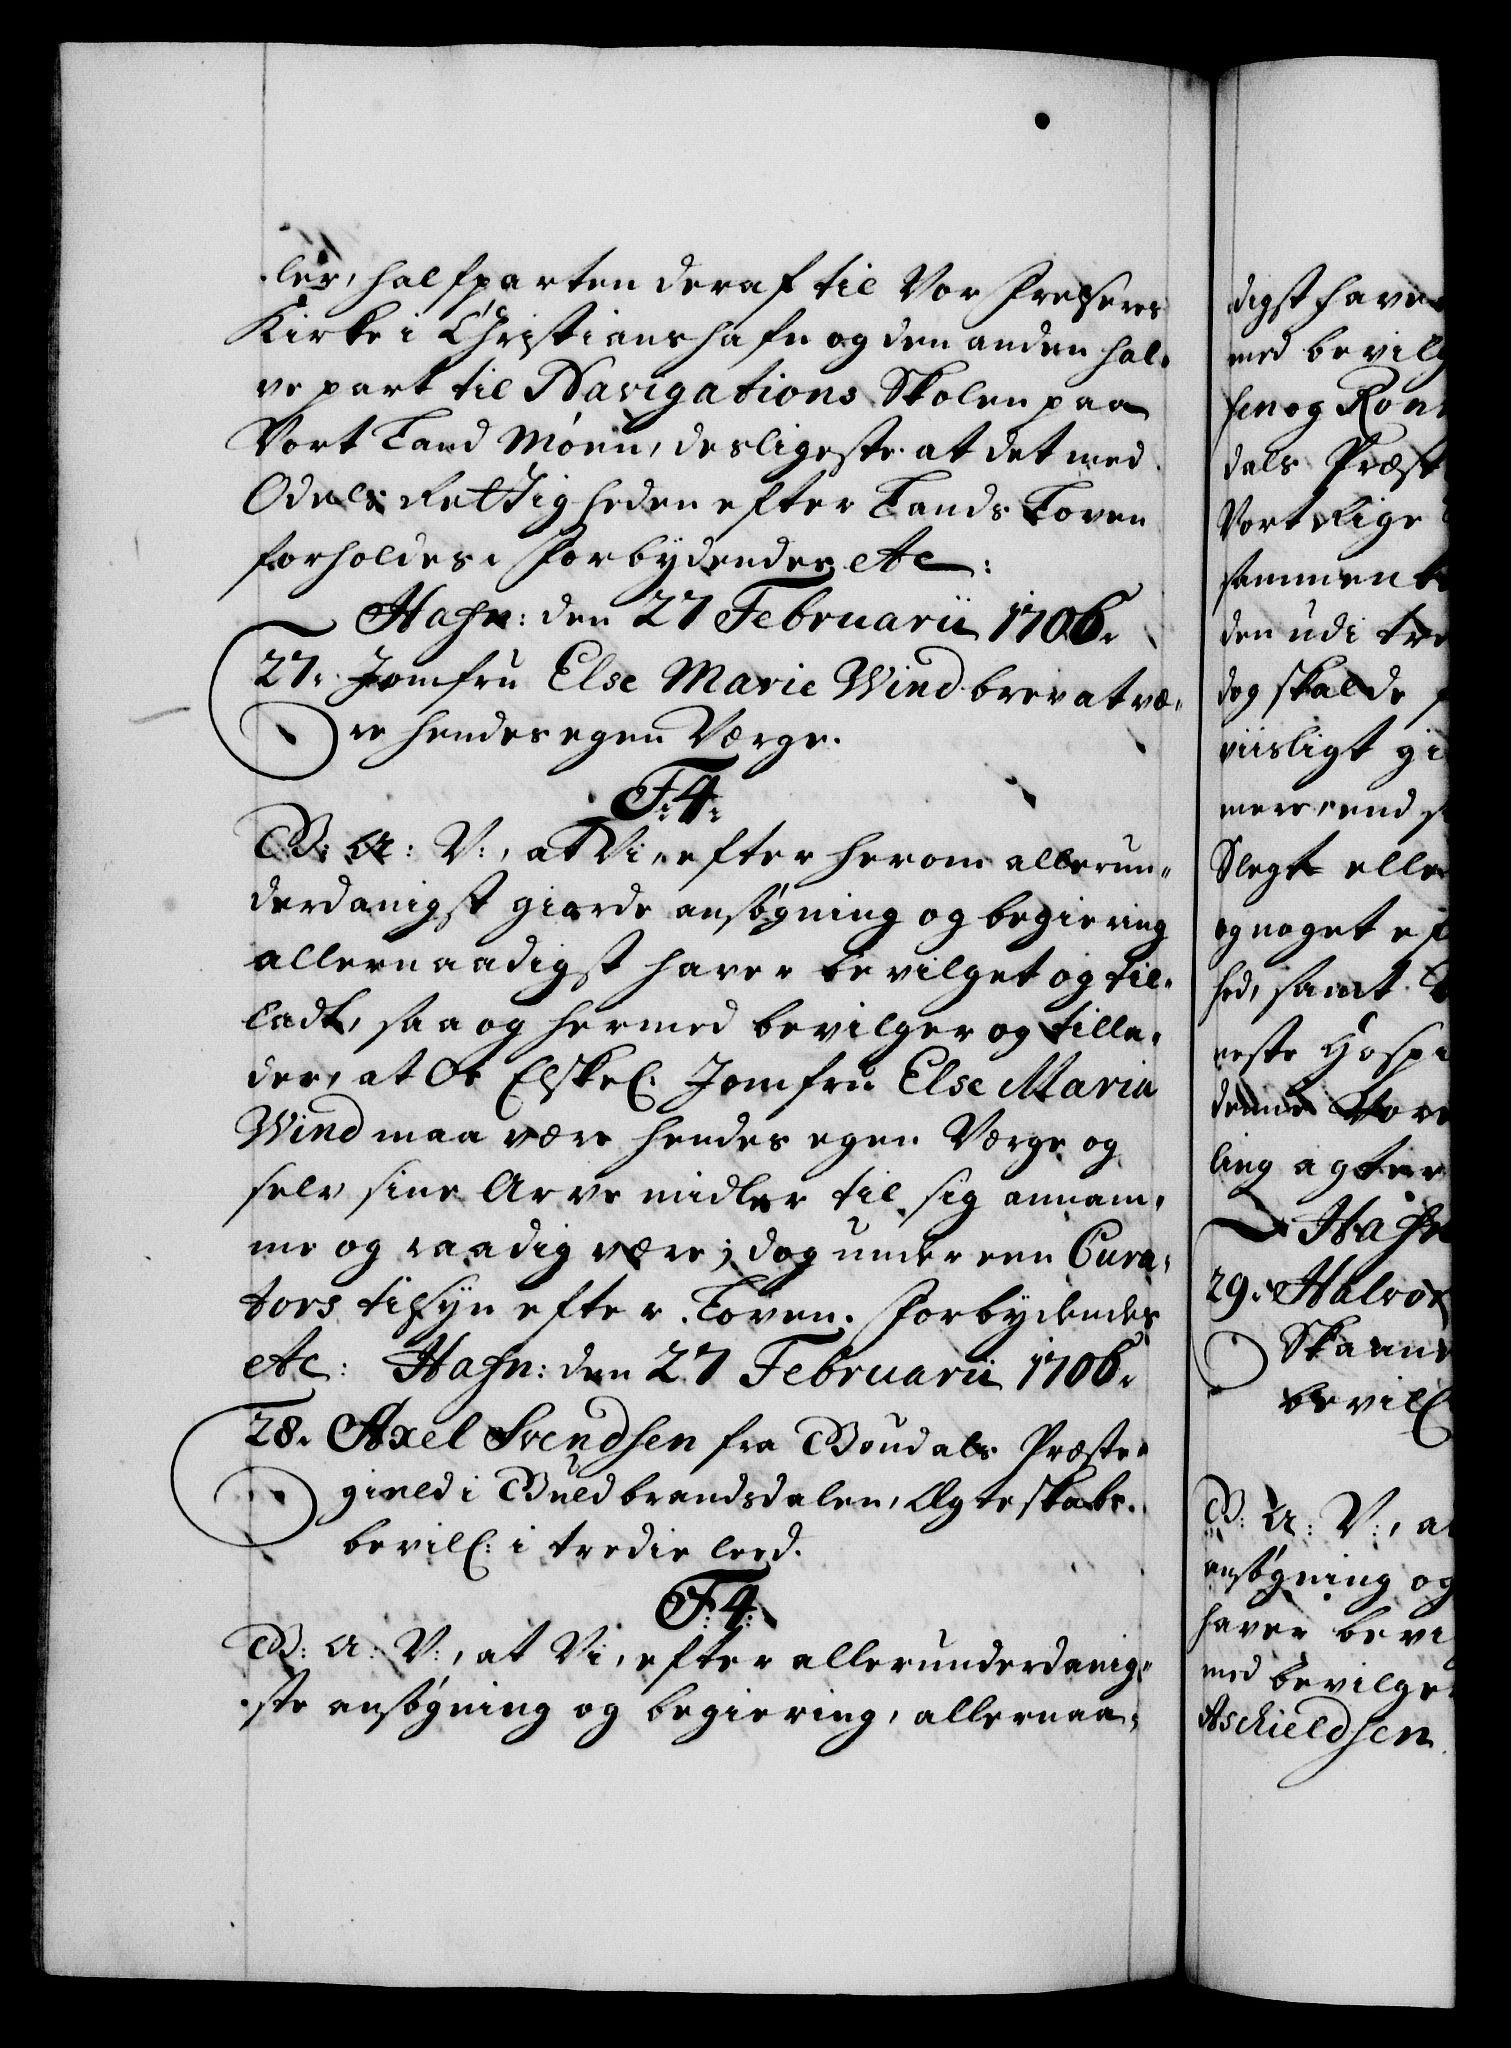 ler, halfparten deraf til Vor Frelseres
Kirke i Christianshafn og den anden hal-
ve part til Navigations Skolen paa
Vort Land Møen, desligeste at det med
Odels Rettigheden efter Lands Loven
forholdes. Forbydendes etc:
Hafn: den 27 Februarii 1706.
27. Jomfru Else Marie Wind brev at væ-
re hendes egen Værge.
F: 4.
G: A: V:, at Vi, efter herom allerun-
derdanigst giorde ansøgning og begiering
allernaadigst haver bevilget og til-
ladt, saa og hermed bevilger og tilla-
der, at Os Elskel. Jomfru Else Maria
Wind maa være hendes egen Værge og
selv sine Arve midler til sig annam-
me og raadig være; dog under een Cura-
tors tilsyn efter Loven. Forbydendes
etc: Hafn: den 27 Februarii 1706.
28. Axel Svendsen fra Goudals Præste-
gield i Guldbrandsdalen, Ægteskabs-
bevil: i tredie leed.
F: 4.
G: A: V:, at Vi, efter allerunderdanig-
ste ansøgning og begiering, allernaa-
digst have
med bevilg
sen og Ron
dals Præst
Vort Rige
sammen
den udi tre
dog skal de
viisligt gi
mere, end
Slegt elle
og noget ef
hed, samt
neste Hospi
denne Vore
ling agter
Hafn
29. Halvor
Skaan
bevil
G: A: V:, at
ansøgning og
haver bevi
med bevilge
Aschieldsen